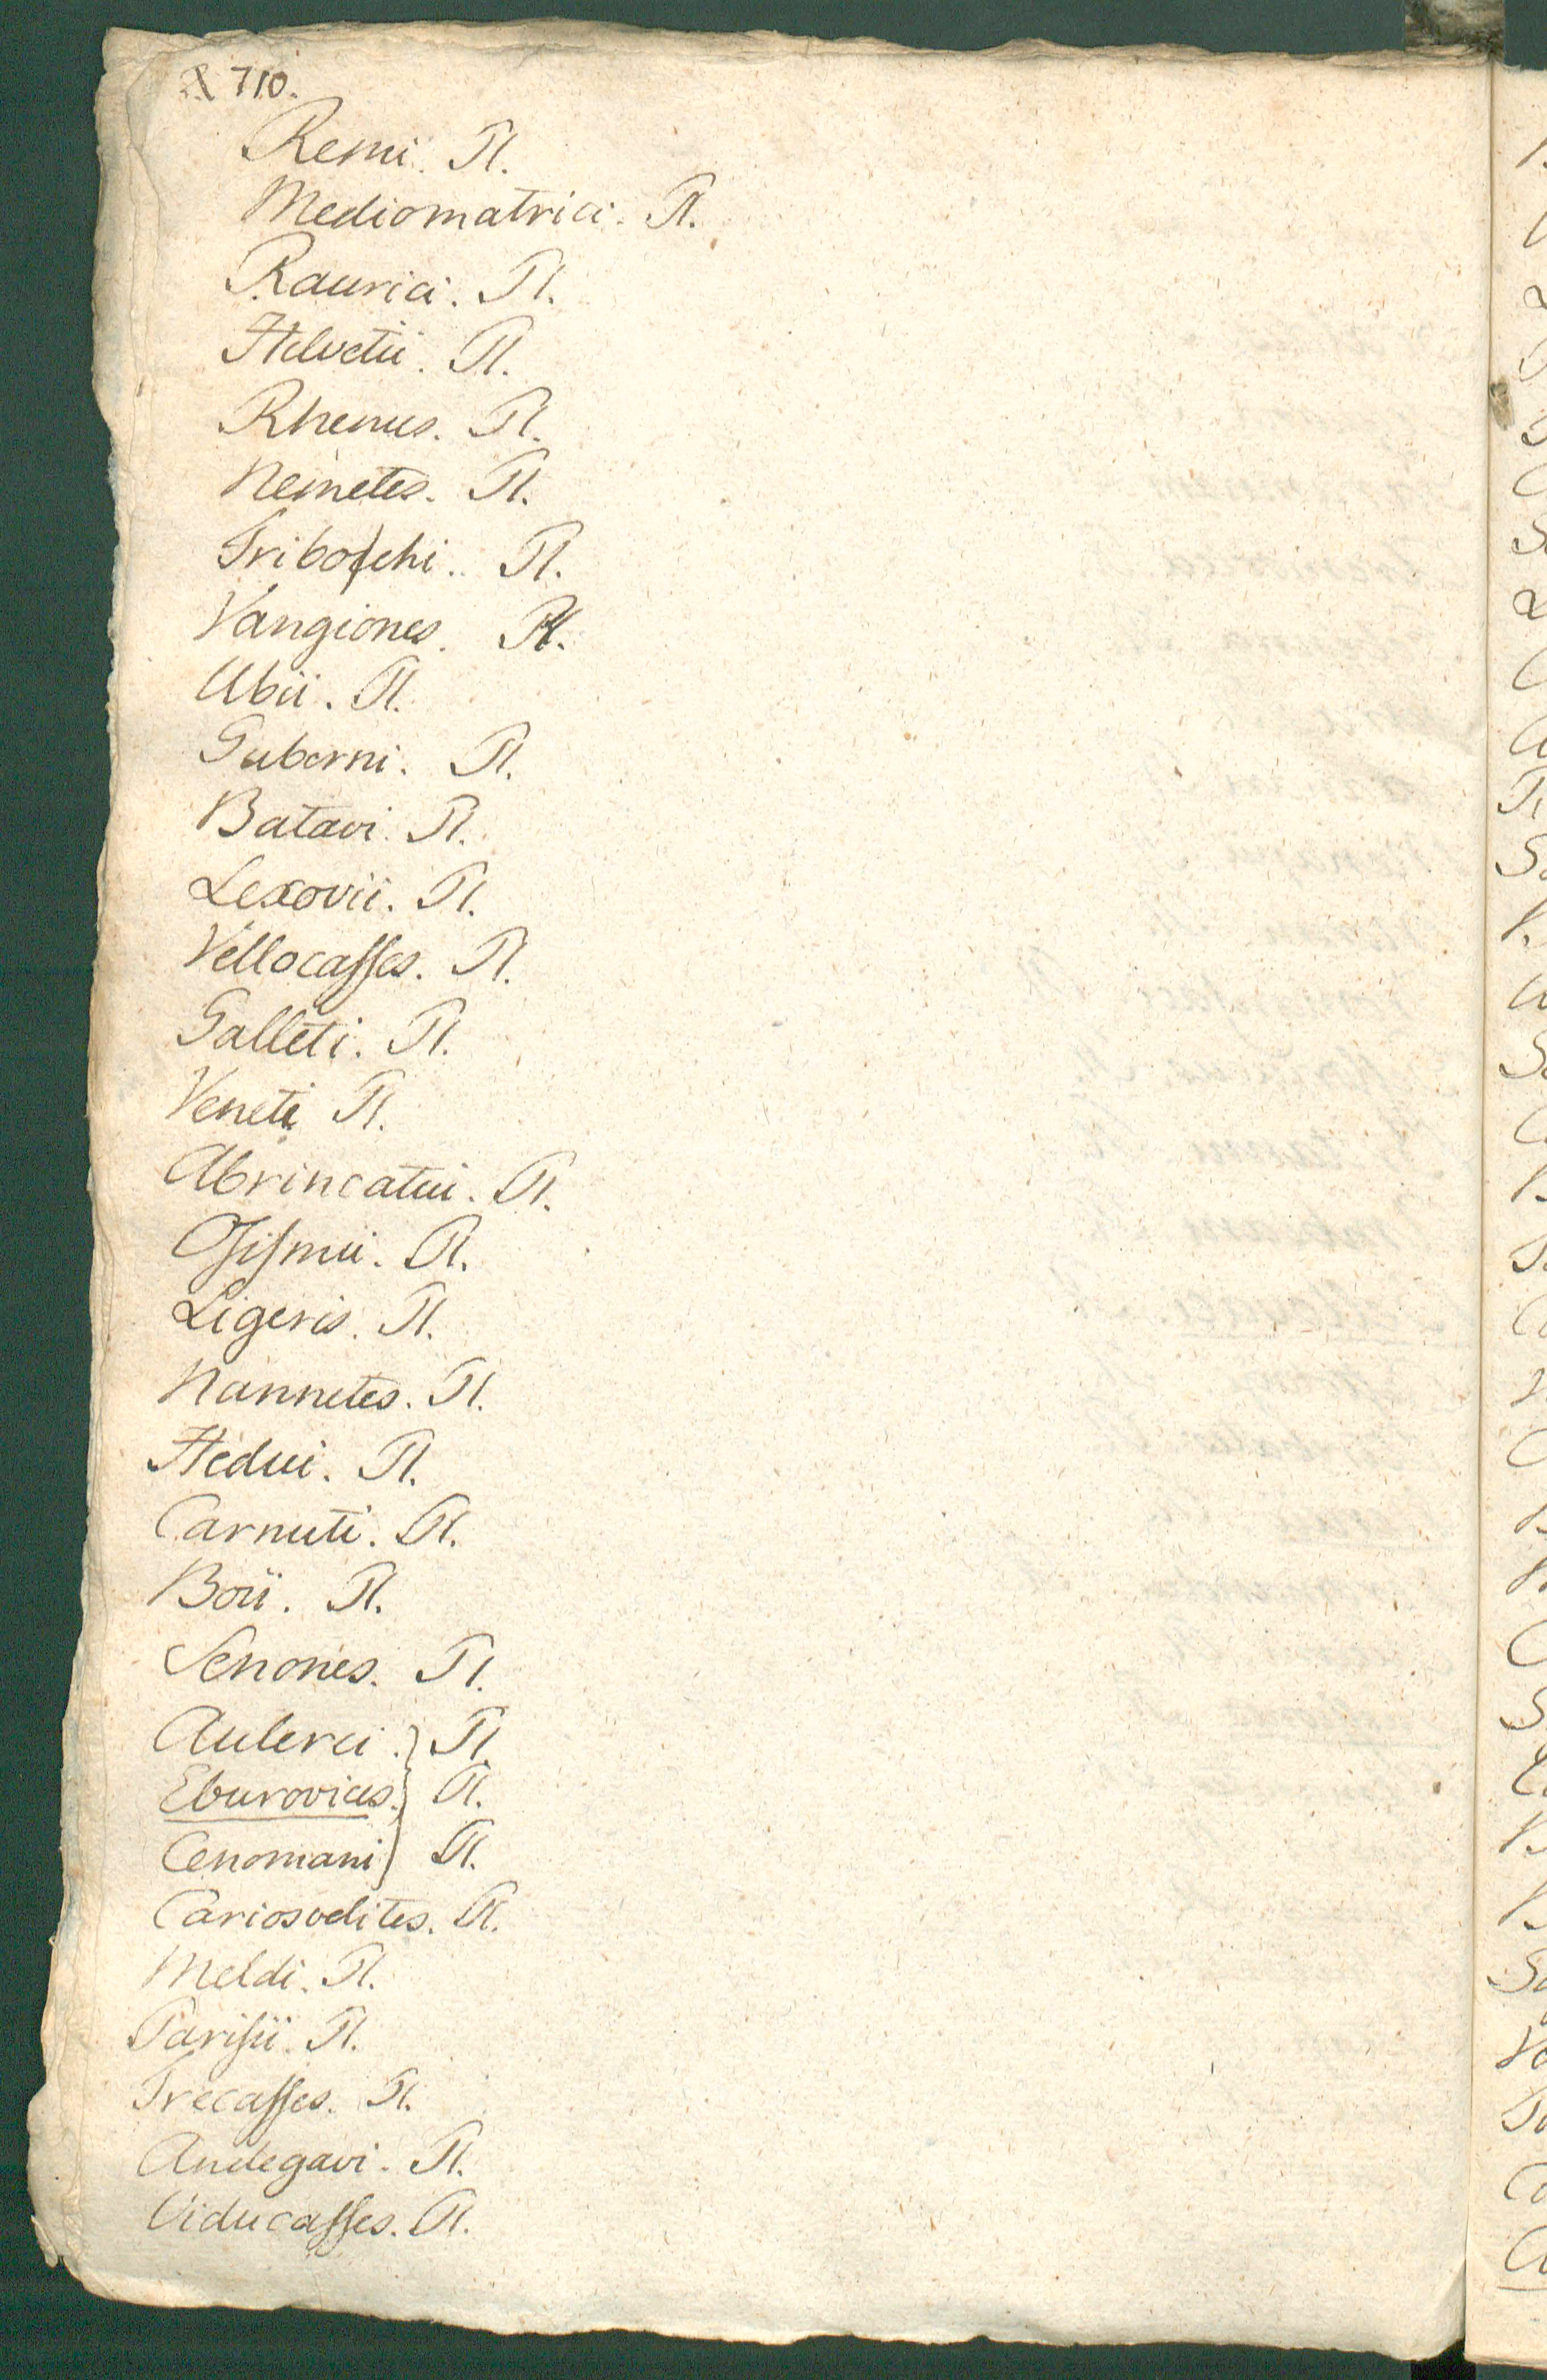 710.
Remi. Pl.
Mediomatrici. Pl.
Raurici. Pl.
Helvetii. Pl.
Rhenus. Pl.
Nemetes. Pl.
Tribochi. Pl.
Vangiones. Pl.
Ubii. Pl.
Guberni. Pl.
Batavi. Pl.
Lexovii. Pl.
Vellocaſſes. Pl.
Galleti. Pl.
Veneti Pl.
Abrincatui. Pl.
Oſiſmii. Pl.
Ligeris. Pl.
Nannetes. Pl.
Hedui. Pl.
Carnuti. Pl.
Boii. Pl.
Senones. Pl.
Aulerci. } Pl.
Eburovices. } Pl.
Cenomani } Pl.
Cariosvelites. Pl.
Meldi. Pl.
Pariſii. Pl.
Trecaſſes. Pl.
Andegavi. Pl.
Viducaſſes. Pl.